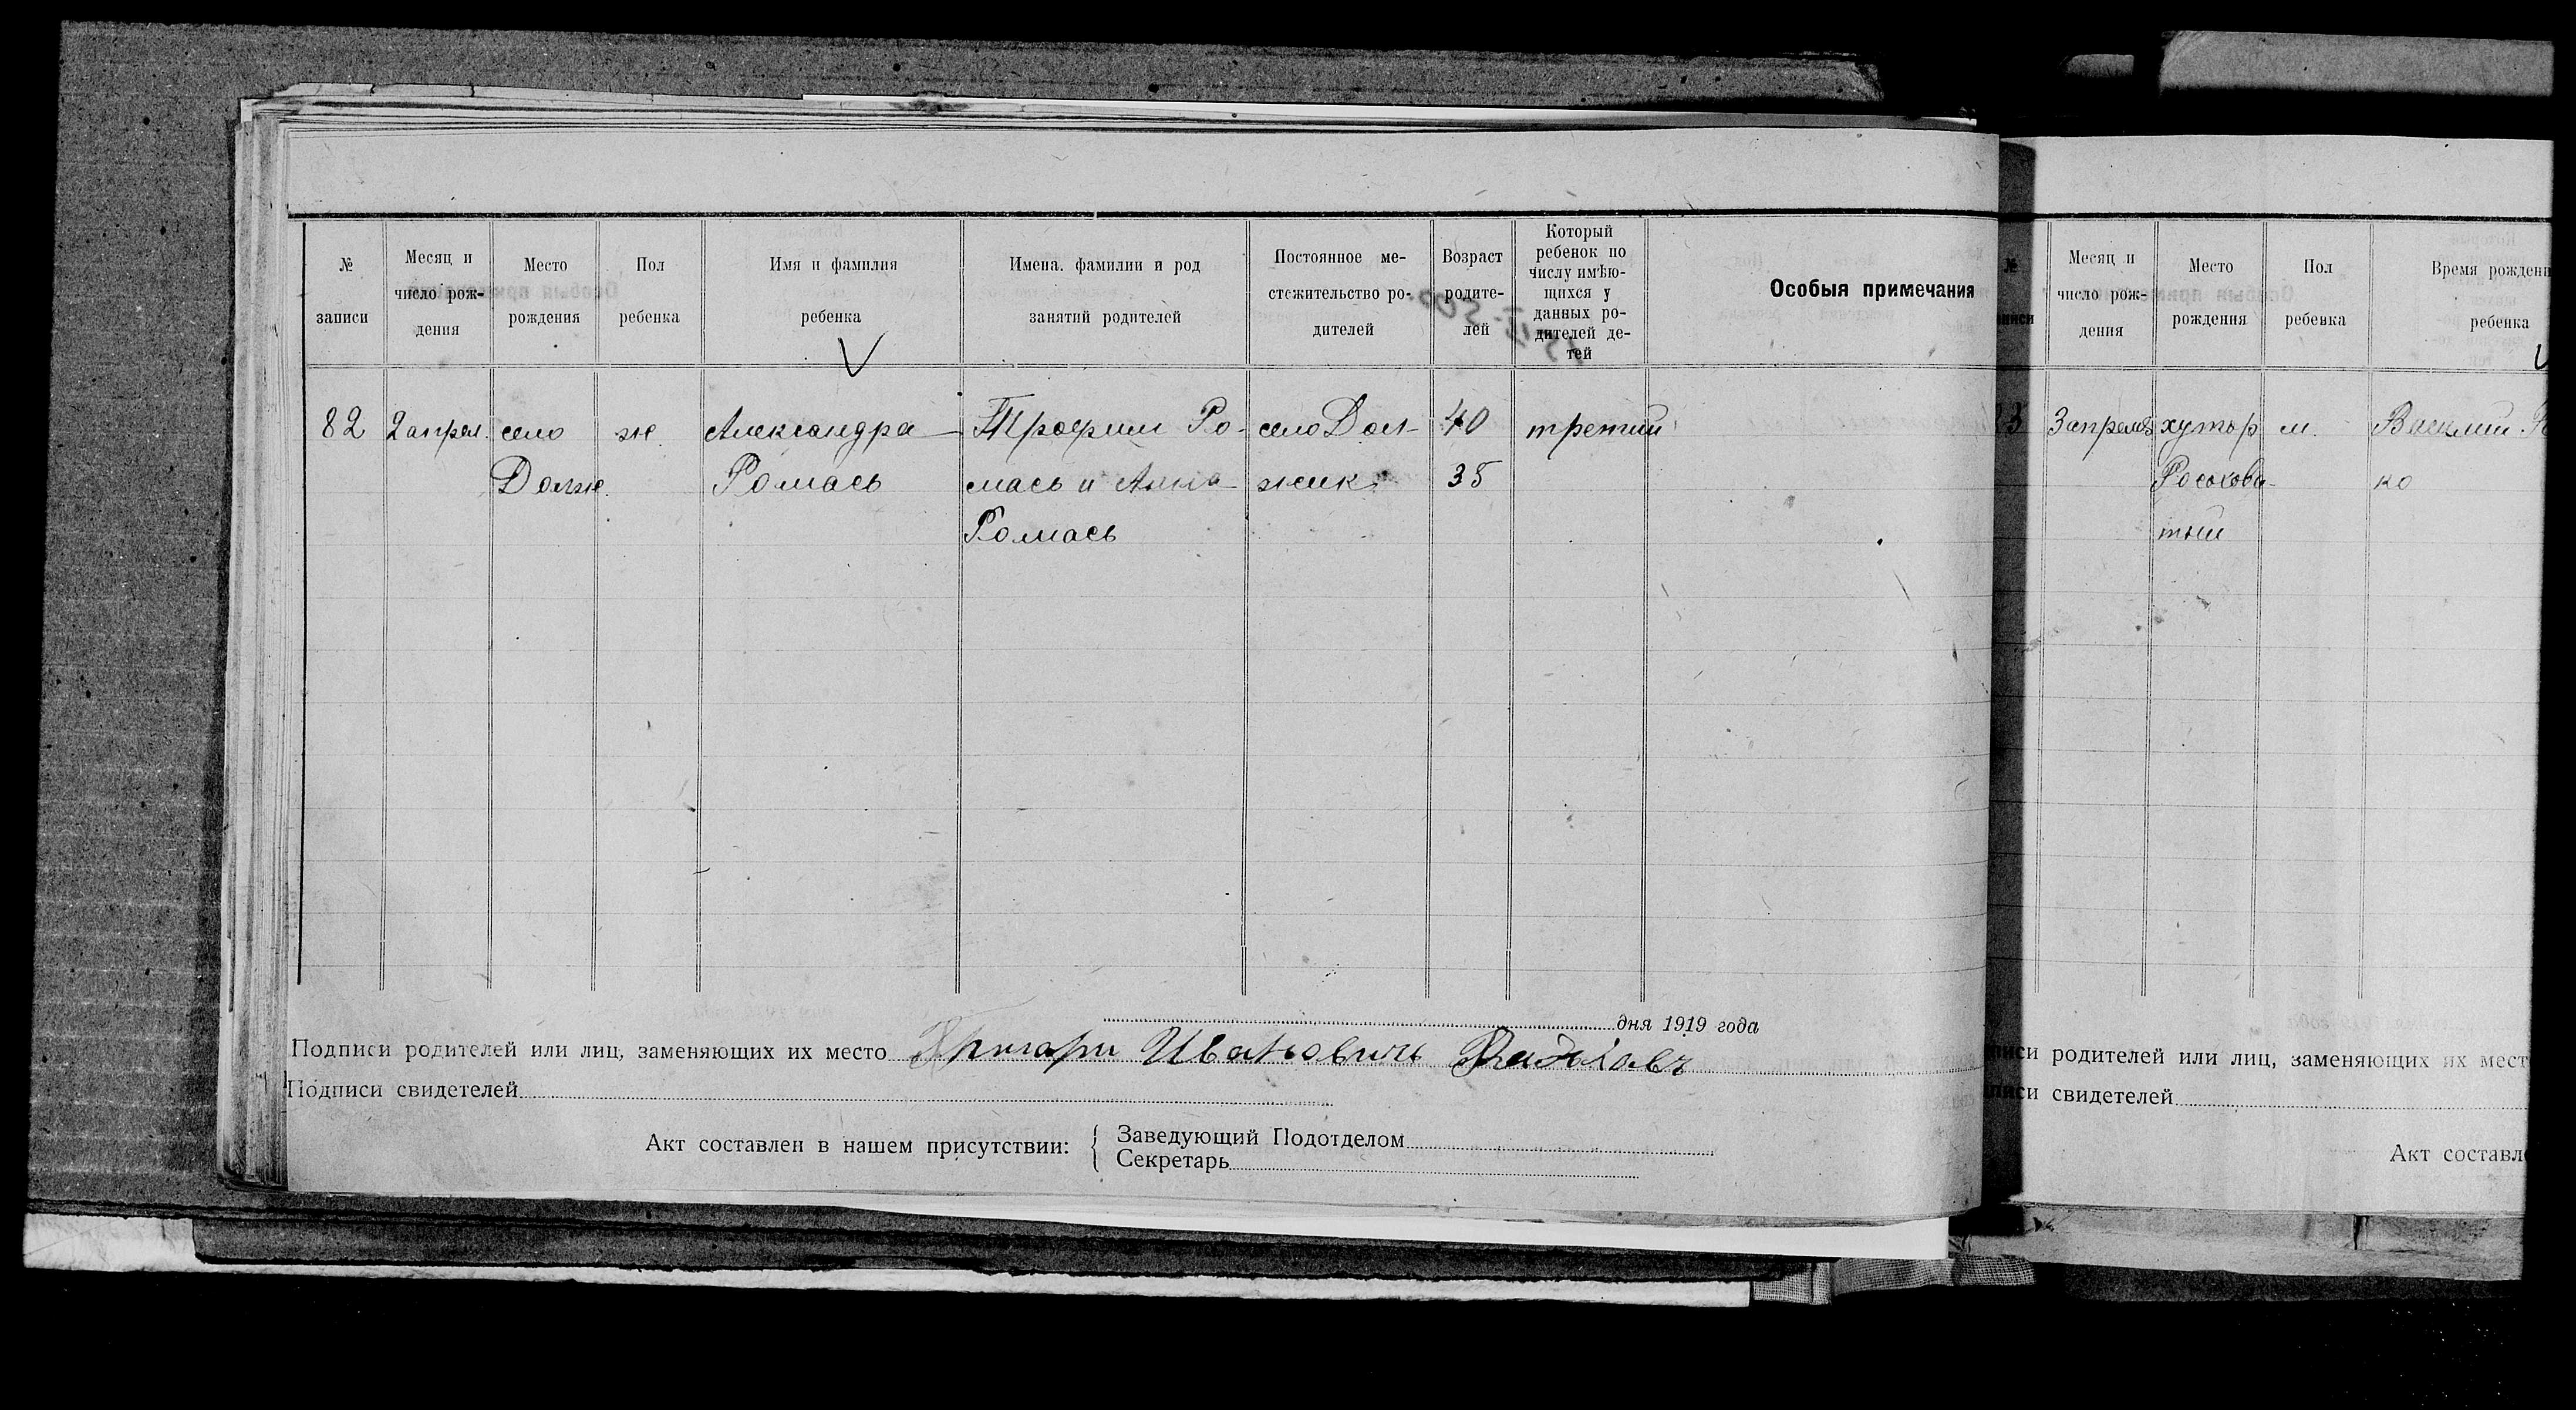 № записи
Месяц и число рождения
Место рождения
Пол ребенка
Имя и фамилия ребенка
Имена. фамилии и род занятий родителей
Постоянное ме-
стежительство ро-
дителей
Возраст
родите-
лей
Который
ребенок по
числу имѣю-
щихся у
данных ро-
дителей де-
тей
Особыя примечания
82 2 апрел. село ж Александра Трофим Ро- село Дол- 40 третий
Долж. Ромась мась и Анна жик 35
Ромась
дня 1919 года
Подписи родителей или лиц, заменяющих их место Иванович
Подписи свидетелей
Акт составлен в нашем присутствии:
Заведующий Подотделом
Секретарь
№
Месяц и
число рож-
дения
Место
рождения
Пол
ребенка
Время рождени
ребенка
3 апреля хутор м. Василий
Росохова- ко
тый
родителей или лиц, заменяющих их мест
свидетелей
Акт составл